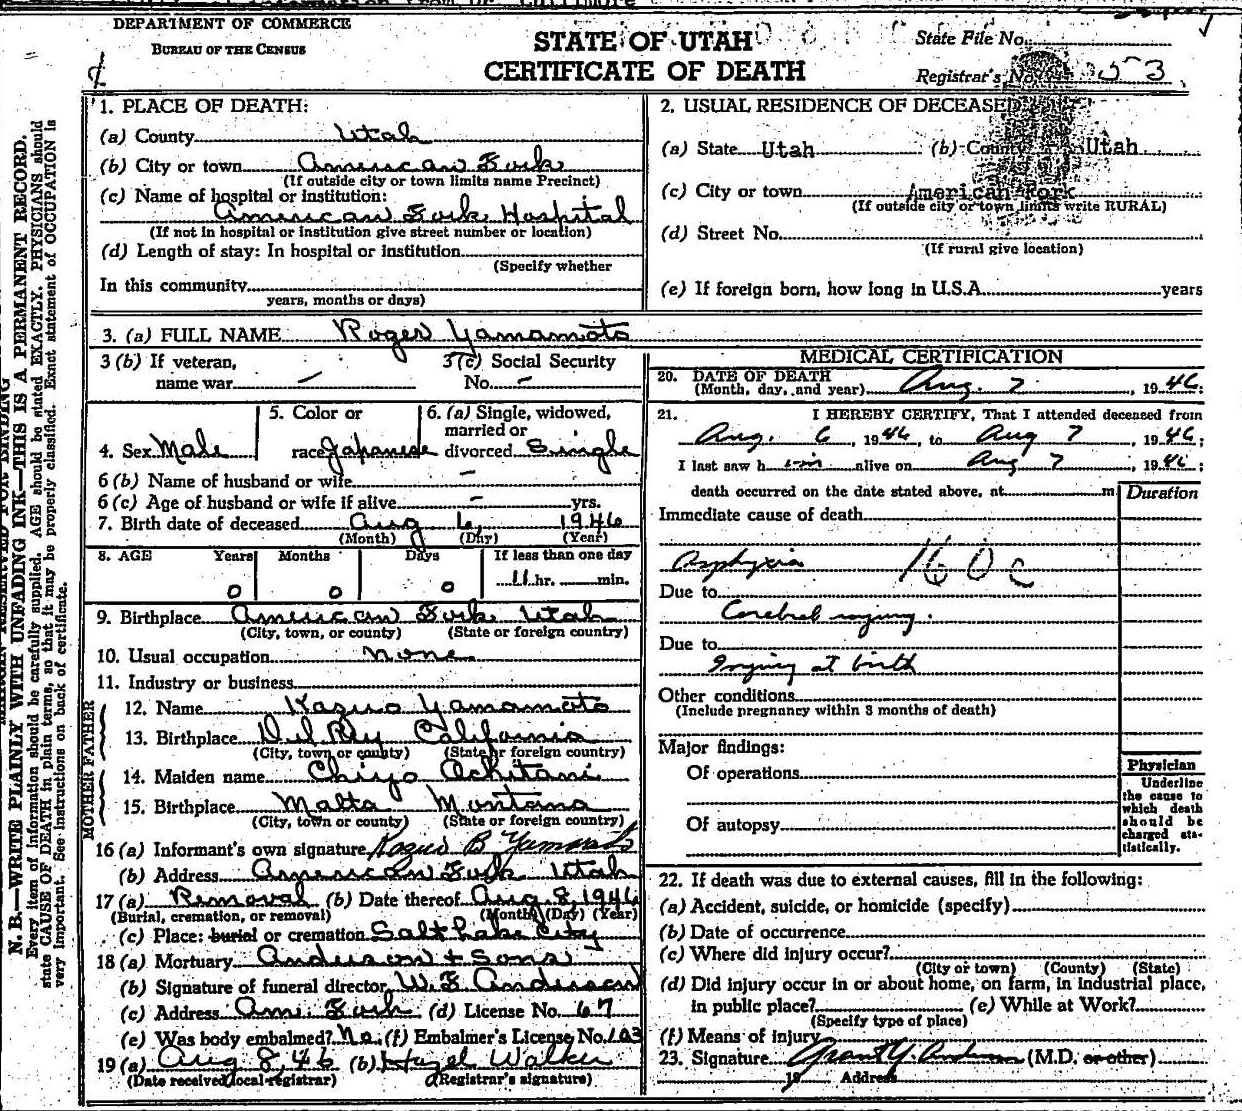 DEPARTMENT OF COMMERCE
BUREAU OF THE CENSUS
STATE OF UTAH
CERTIFICATE OF DEATH
State File No.
Registrar's No. 53
N. B.—WRITE PLAINLY WITH UNFADING INK—THIS IS A PERMANENT RECORD.
Every item of information should be carefully supplied. AGE should be stated EXACTLY. PHYSICIANS should
state CAUSE OF DEATH in plain terms, so that it may be properly classified. Exact statement of OCCUPATION is
very important. See instructions on back of certificate.
1. PLACE OF DEATH:
(a) County Utah
(b) City or town American Fork
(If outside city or town limits name Precinct)
(c) Name of hospital or institution:
American Fork Hospital
(If not in hospital or institution give street number or location)
(d) Length of stay: In hospital or institution
(Specify whether
In this community
years, months or days)
2. USUAL RESIDENCE OF DECEASED
(a) State Utah (b) County Utah
(c) City or town American Fork
(If outside city or town limits write RURAL)
(d) Street No.
(If rural give location)
(e) If foreign born, how long in U.S.A. years
3. (a) FULL NAME Roger Yamamoto
3 (b) If veteran, name war — 3 (c) Social Security No. —
4. Sex Male
5. Color or race Japanese
6. (a) Single, widowed, married or divorced Single
6 (b) Name of husband or wife —
6 (c) Age of husband or wife if alive — yrs.
7. Birth date of deceased Aug 6, 1946
(Month) (Day) (Year)
8. AGE Years Months Days If less than one day
0 0 0 11 hr. min.
9. Birthplace American Fork Utah
(City, town, or county) (State or foreign country)
10. Usual occupation none
11. Industry or business
FATHER
12. Name Kazuo Yamamoto
13. Birthplace Del Rey California
(City, town or county) (State or foreign country)
MOTHER
14. Maiden name Chiyo Achitani
15. Birthplace Malta Montana
(City, town or county) (State or foreign country)
16 (a) Informant's own signature Kazuo B Yamamoto
(b) Address American Fork Utah
17 (a) Removal (b) Date thereof Aug. 8, 1946
(Burial, cremation, or removal) (Month) (Day) (Year)
(c) Place: burial or cremation Salt Lake City
18 (a) Mortuary Anderson + Sons
(b) Signature of funeral director W. E. Anderson
(c) Address Am. Fork (d) License No. 67
(e) Was body embalmed? No (f) Embalmer's License No. 103
19 (a) Aug 8, 46 (b) Hazel Walker
(Date received local registrar) (Registrar's signature)
MEDICAL CERTIFICATION
20. DATE OF DEATH
(Month, day, and year) Aug. 7, 1946;
21. I HEREBY CERTIFY, That I attended deceased from
Aug. 6, 1946, to Aug 7, 1946;
I last saw him alive on Aug 7, 1946;
death occurred on the date stated above, at m
Duration
Immediate cause of death
Asphyxia 160c
Due to
Cerebral injury.
Due to
Injury at birth
Other conditions
(Include pregnancy within 3 months of death)
Major findings:
Of operations
Of autopsy
Physician
Underline
the cause to
which death
should be
charged sta-
tistically.
22. If death was due to external causes, fill in the following:
(a) Accident, suicide, or homicide (specify)
(b) Date of occurrence
(c) Where did injury occur?
(City or town) (County) (State)
(d) Did injury occur in or about home, on farm, in industrial place,
in public place? (e) While at Work?
(Specify type of place)
(f) Means of injury
23. Signature Grant Y. Anderson (M.D. or other)
19 Address